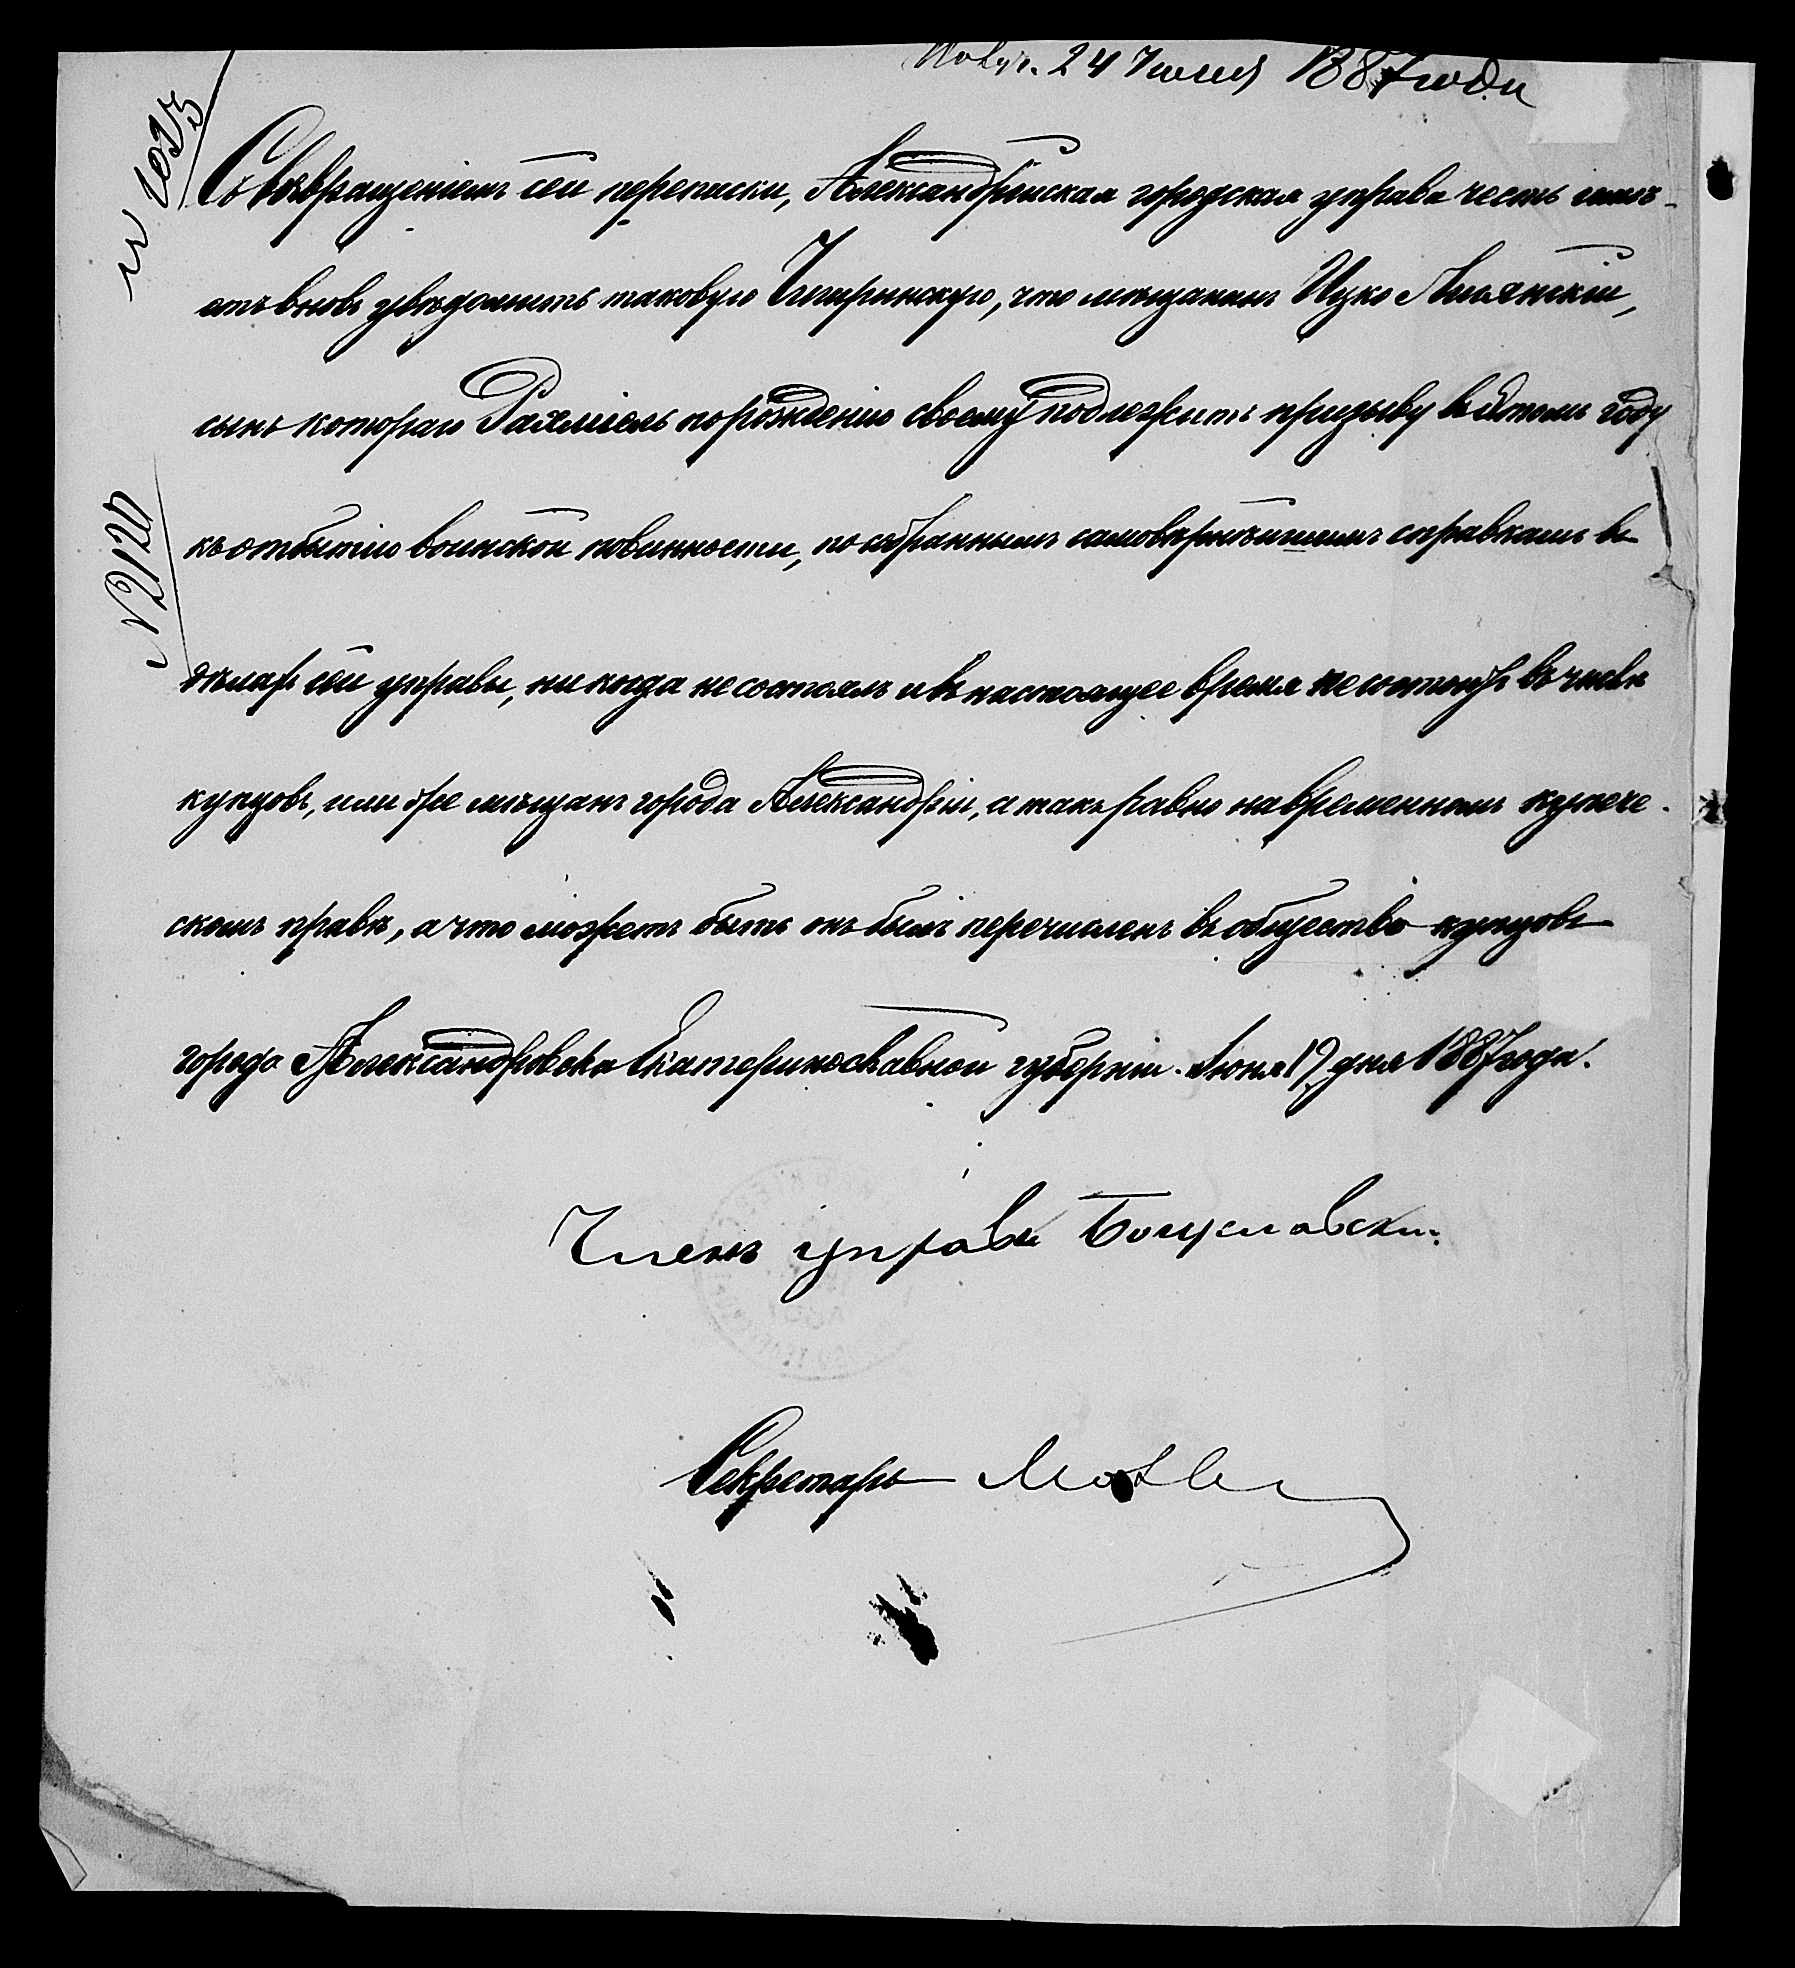 Получ. 24 Июня 1887 года
Съ возвращеніемъ сей переписки, Александрійская городская управа честь имѣ-
етъ вновь увѣдомить таковую Чигиринскую, что мѣщанинъ Ицко Лысянскій,
сынъ котораго Рахміель по рожденію своему подлежитъ призыву въ этомъ году
къ отбытію воинской повинности, по собраннымъ самовѣрнѣйшимъ справкамъ въ
дѣлахъ сей управы, никогда не состоялъ и въ настоящее время не состоитъ въ числѣ
купцовъ, или же мѣщанъ города Александріи, а такъ равно на временномъ купече-
скомъ правѣ, а что можетъ быть онъ былъ перечисленъ въ общество купцовъ
города Александровска Екатеринославской губерніи. Июня 19 дня 1887 года.
№ 2120
Членъ управы Богуславскій
Секретарь